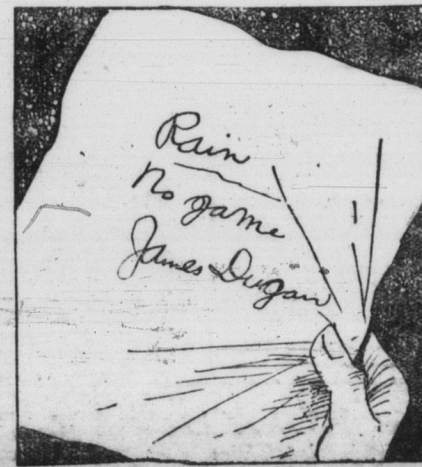 Rain
No game
James Dugan